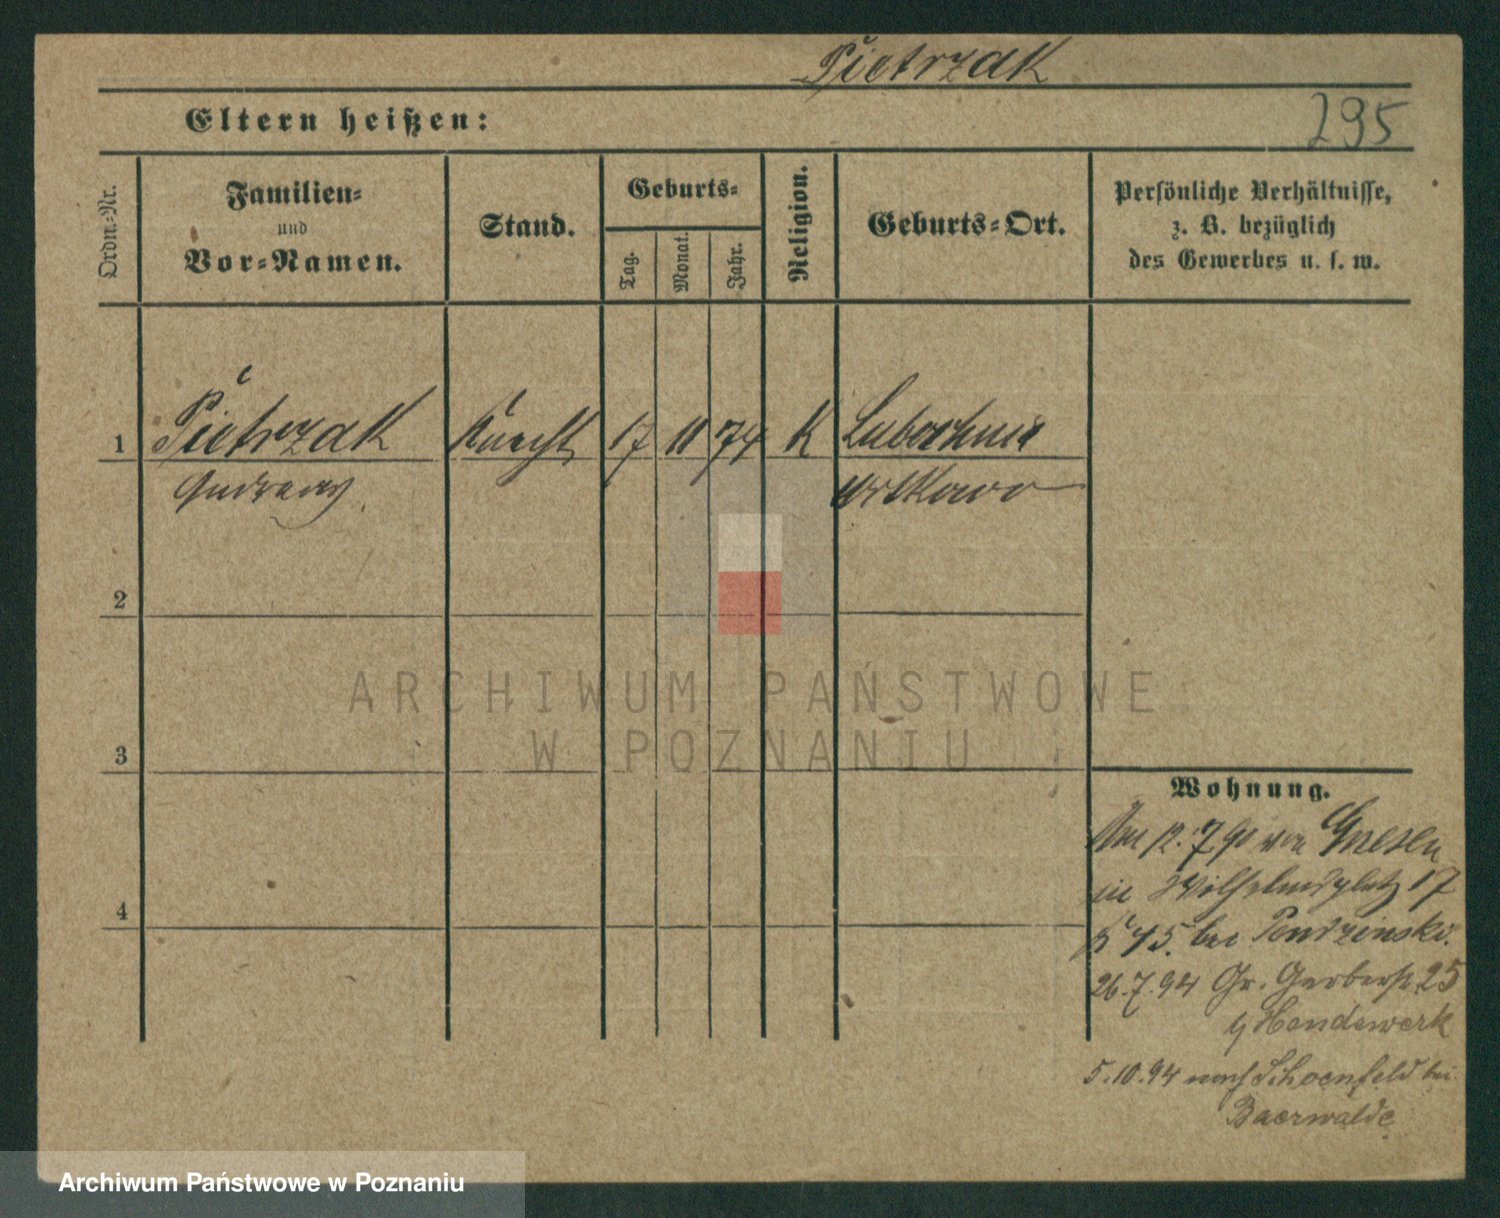 Pietrzak
Eltern heißen:
295
Ordn.-Nr.
Familien-
und
Vor-Namen.
Stand.
Geburts-
Tag.
Monat.
Jahr.
Religion.
Geburts-Ort.
Persönliche Verhältnisse,
z. B. bezüglich
des Gewerbes u. s. w.
1 Pietrzak Knecht 17 11 74 K Lubochnia
Andreas Witkowo
2
3
4
ARCHIWUM PAŃSTWOWE
W POZNANIU
Wohnung.
12. 7 90 von Gnesen
Wilhelmsplatz 17
bei
26. 7. 94 Gr. Gerberstr. 25
Hendewerk
5. 10. 94 nach Schoenfeld bei
Baerwalde
Archiwum Państwowe w Poznaniu